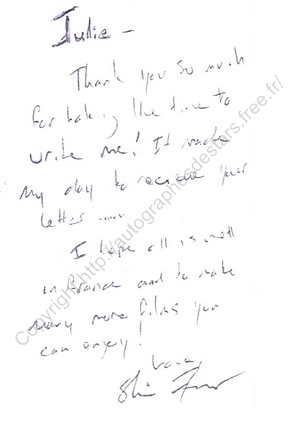 Julie -
Thank you so much
for taking the time to
write me! It made
my day to receive your
letter .....
I hope all is well
in France and to make
many more films you
can enjoy!
Copyright http://autographesdestars.free.fr/